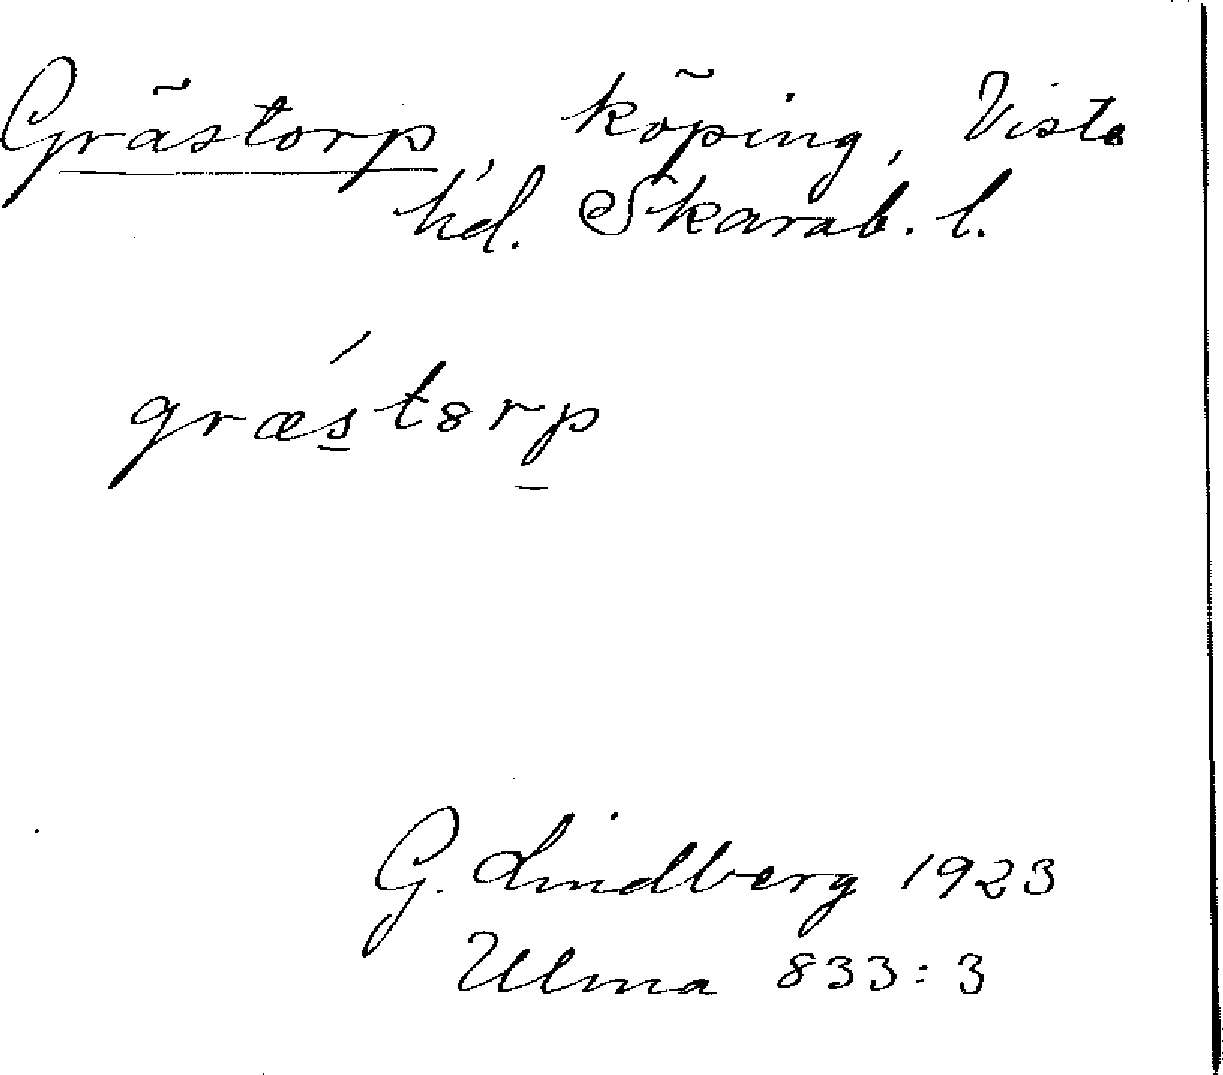 Grästorp, köping, Viste
hd. Skarab. l.
græ´s̲tȣrp̲
G. Lindberg 1923
Ulma 833:3